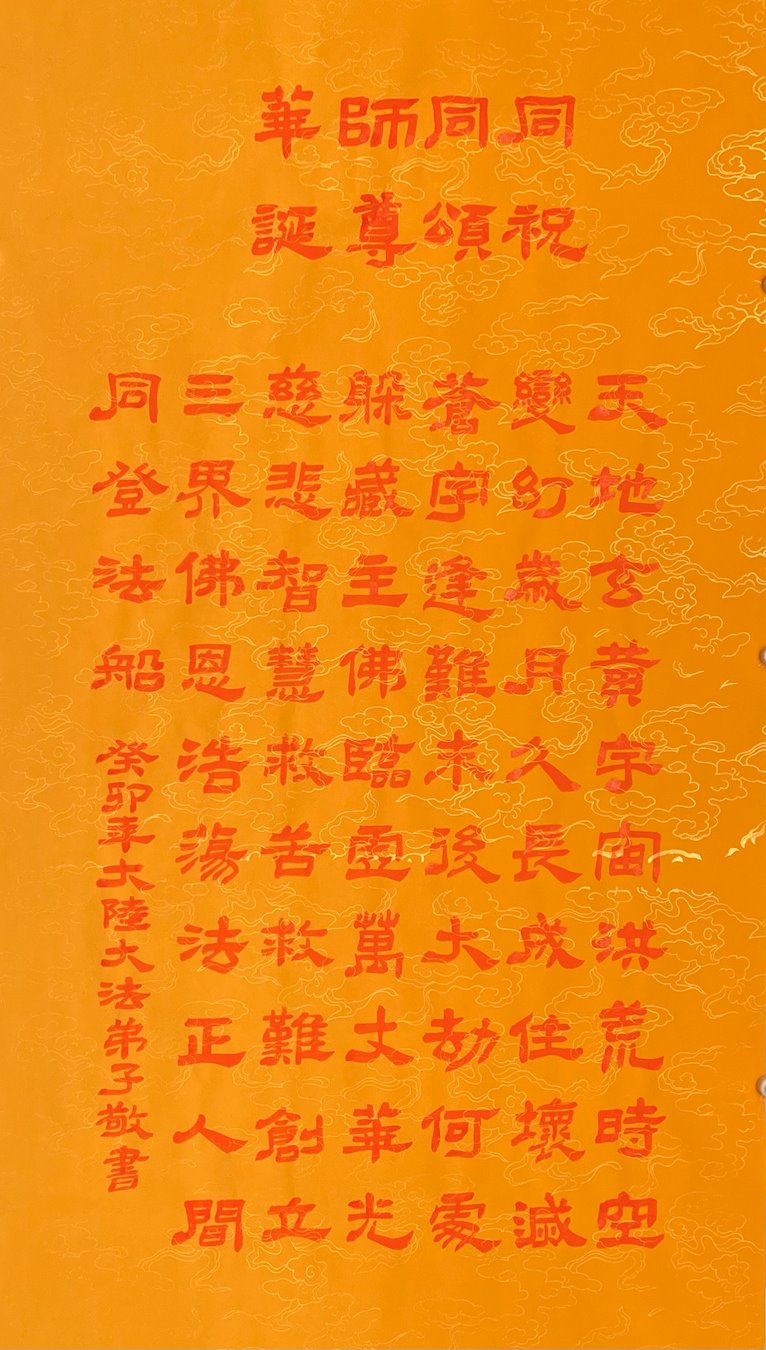 同祝
同頌
師尊
華誕
天地玄黃宇宙洪荒時空
變幻歲月久長成住壞滅
蒼宇逢難末後大劫何處
躲藏主佛臨萬丈華光
慈悲智慧救苦救難創立
三界佛恩浩蕩法正人間
同登法船
癸卯年大陸大法弟子敬書